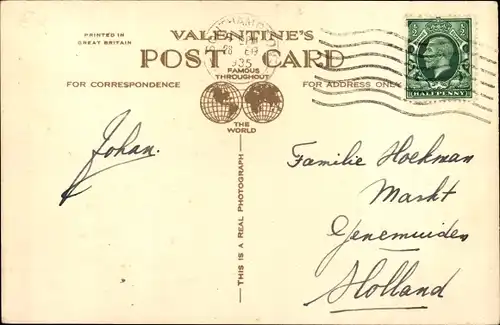 PRINTED IN
GREAT BRITAIN
VALENTINE'S
POST CARD
FAMOUS
THROUGHOUT
FOR CORRESPONDENCE
FOR ADDRESS ONLY
THE
WORLD
THIS IS A REAL PHOTOGRAPH
HALFPENNY
1935
Johan.
Familie Hoekman
Markt
Genemuiden
Holland